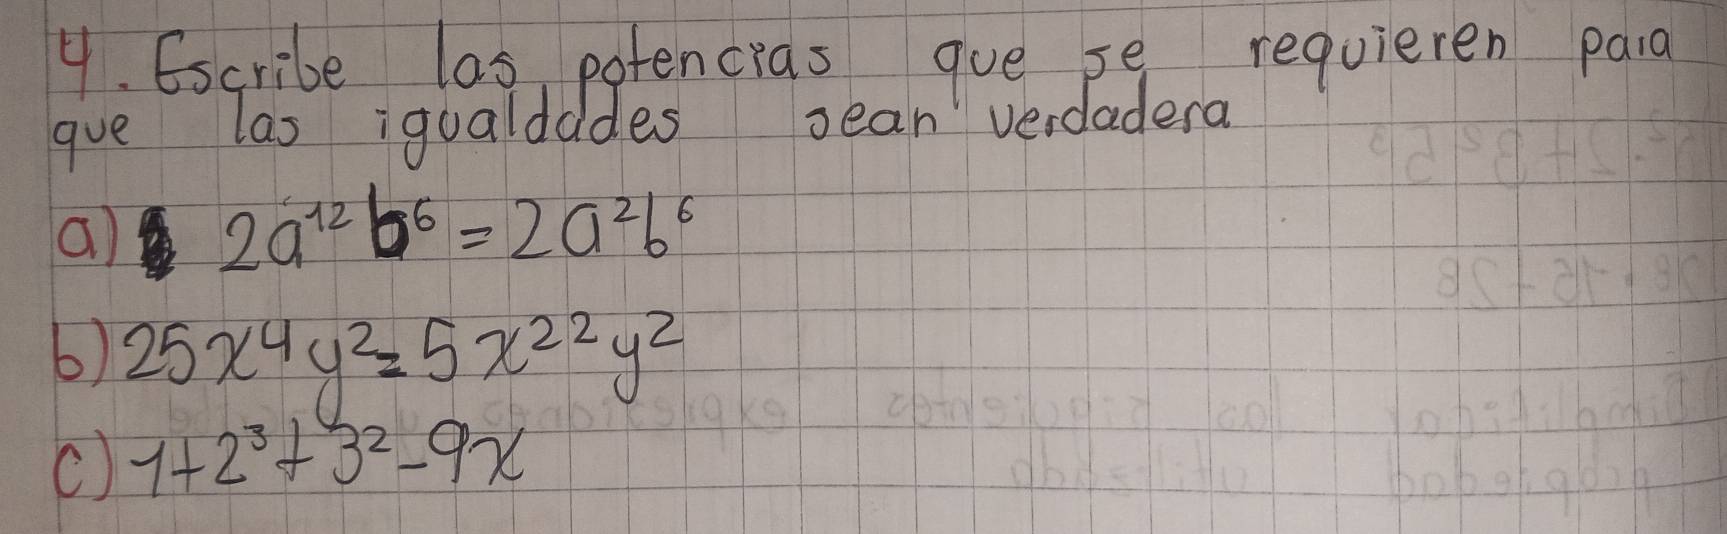 4. Escribe las potencias que se requieren para
que las igualdades sean verdadera
a) 2a¹²b⁶ = 2a²b⁶
b) 25x⁴y² = 5x²²y²
c) 1+2³+3²-9x